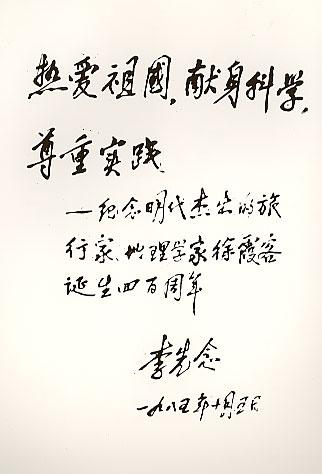 热爱祖國，献身科学，
尊重实践
—纪念明代杰出的旅
行家、地理学家徐霞客
诞生四百周年
李先念
一九八五年十月五日